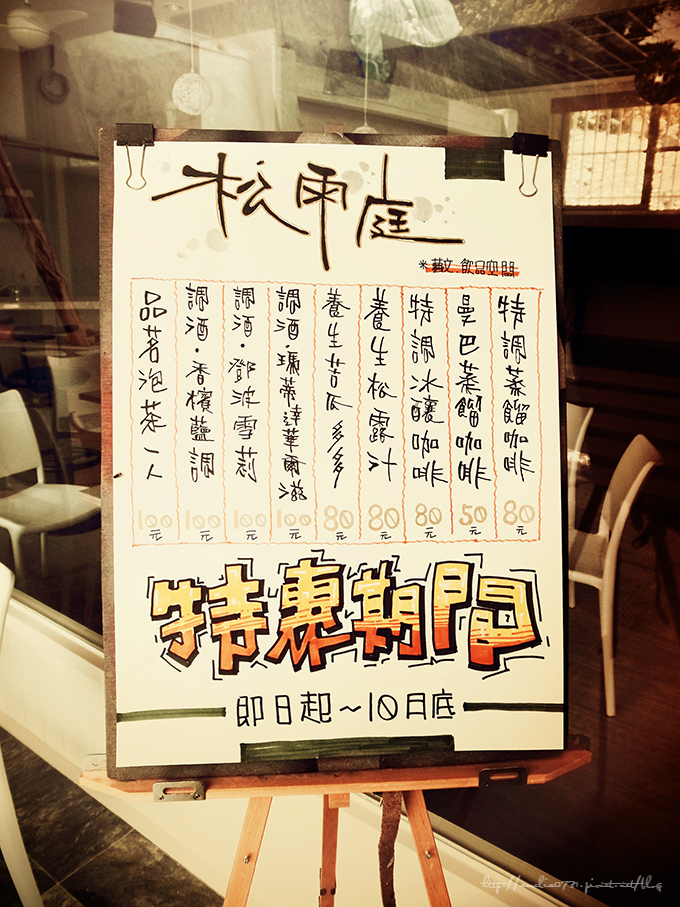 松雨庭
*藝文.飲品空間
特調蒸餾咖啡 80元
曼巴蒸餾咖啡 50元
特調冰釀咖啡 80元
養生松露汁 80元
養生苦瓜多多 80元
調酒·瑪蒂達華爾滋 100元
調酒·鄧波雪莉 100元
調酒·香檳藍調 100元
品茗泡茶一人 100元
特惠期間
即日起~10月底